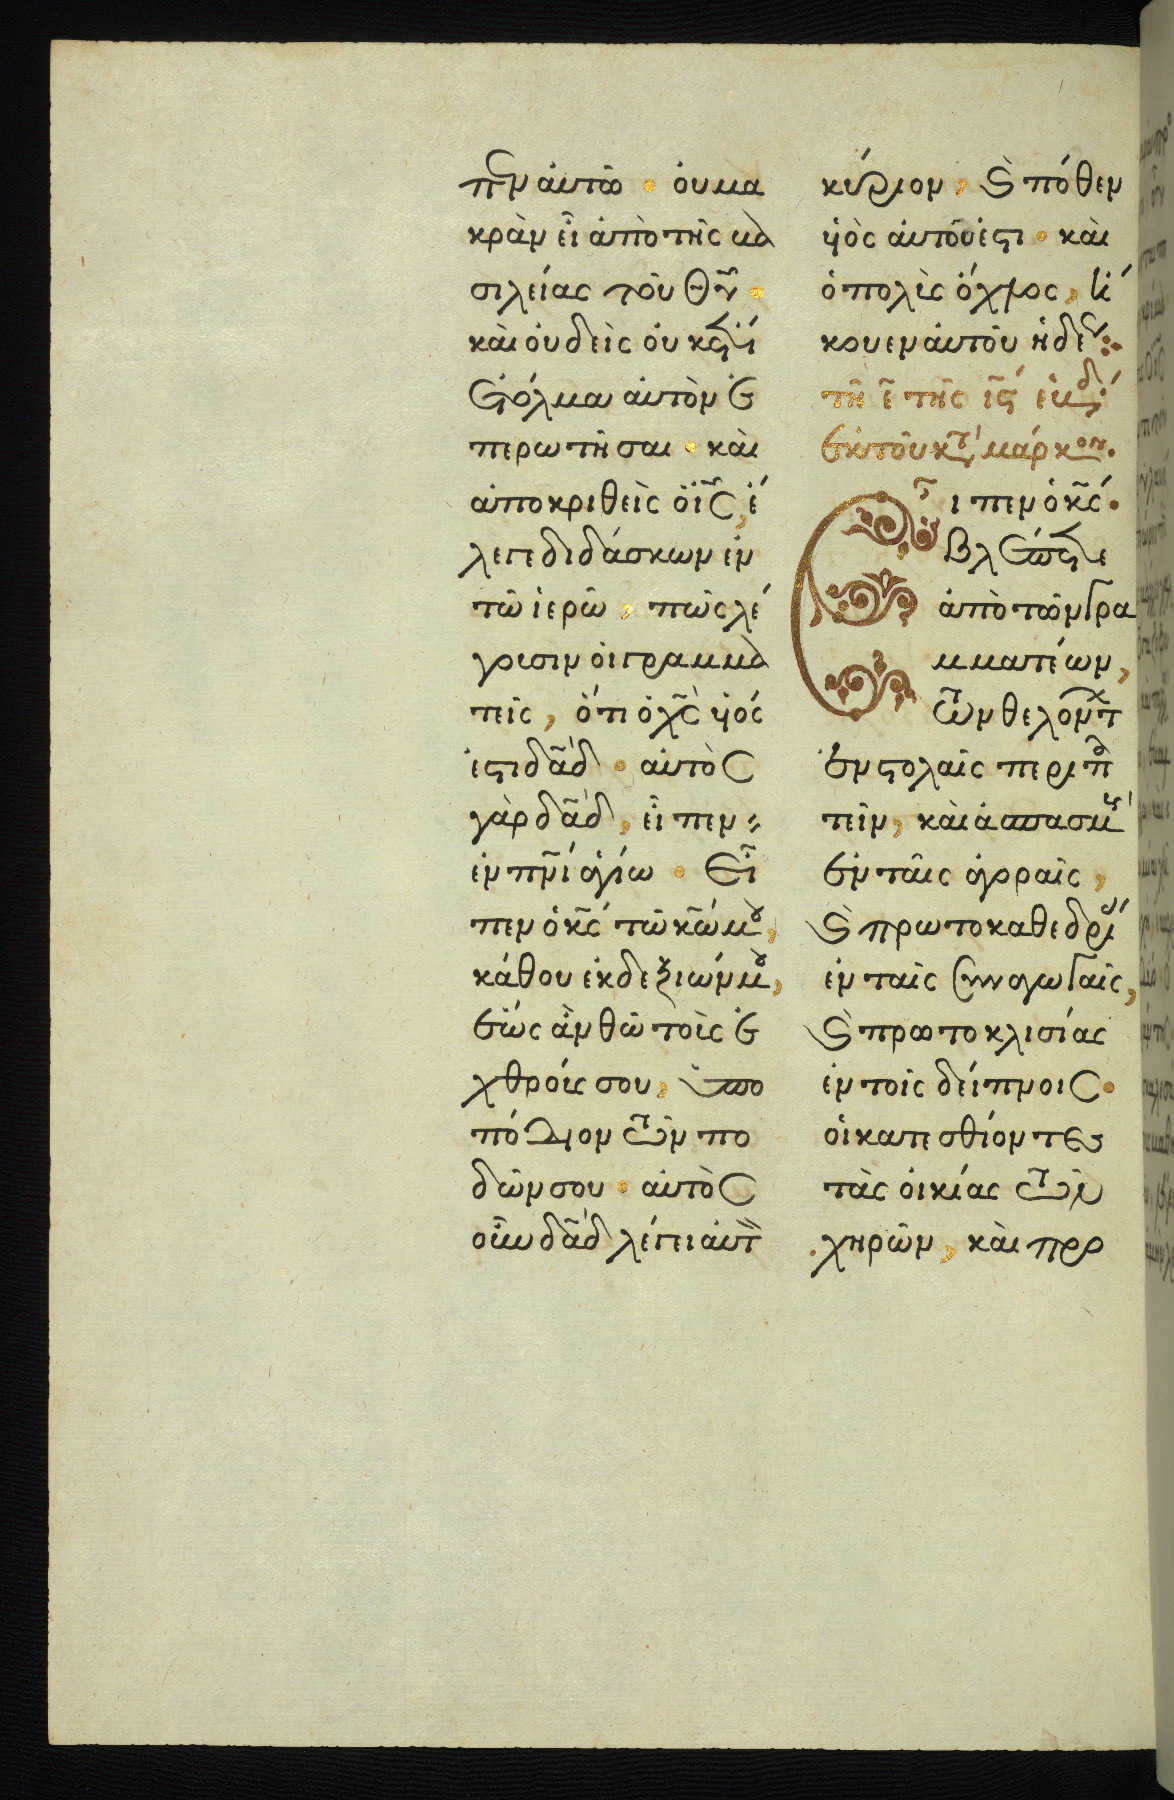 πεν αὐτῶ · οὐ μα
κρὰν εἶ ἀπὸ τῆς βα
σιλείας τοῦ θ̅υ̅ ·
καὶ οὐδεὶς οὐκέτι
ἐτόλμα αὐτὸν ἐ
περωτῆσαι · καὶ
ἀποκριθεὶς ὁ ι̅ς̅, ἔ
λεγε διδάσκων ἐν
τῶ ἱερῶ, πῶς λέ
γουσιν οἱ γραμμα
τεῖς, ὅτι ὁ χ̅ς̅ ὑιός
ἐστι δα̅δ · αὐτὸς
γὰρ δα̅δ, εἶπεν
ἐν π̅ν̅ι ἁγίω · εἶ
πεν ὁ κ̅ς̅ τῶ κ̅ω̅ μου,
κάθου ἐκ δεξιῶν μου,
ἕως ἂν θῶ τοὺς ἐ
χθρούς σου, ὑπο
πόδιον τῶν πο
δῶν σου · αὐτὸς
οὖν δα̅δ λέγει αὐτὸν
κύριον, καὶ πόθεν
ὑιὸς αὐτοῦ ἐστι · καὶ
ὁ πολὺς ὄχλος, ἤ
κουεν αὐτοῦ ἡδέως :
τῆ ε̅ τῆς ι̅ϛ̅ ἑβδ
ἐκ τοῦ κατὰ μάρκον.
Εἶπεν ὁ κ̅ς̅ ·
βλέπετε
ἀπὸ τῶν γρα
μματέων,
τῶν θελόντων
ἐν στολαῖς περιπα
τεῖν, καὶ ἀσπασμοὺς
ἐν ταῖς ἀγοραῖς,
καὶ πρωτοκαθεδρί
ἐν ταῖς συναγωγαῖς,
καὶ πρωτοκλισίας
ἐν τοῖς δείπνοις ·
οἱ κατεσθίοντες
τὰς οἰκίας τῶν
χηρῶν, καὶ προ